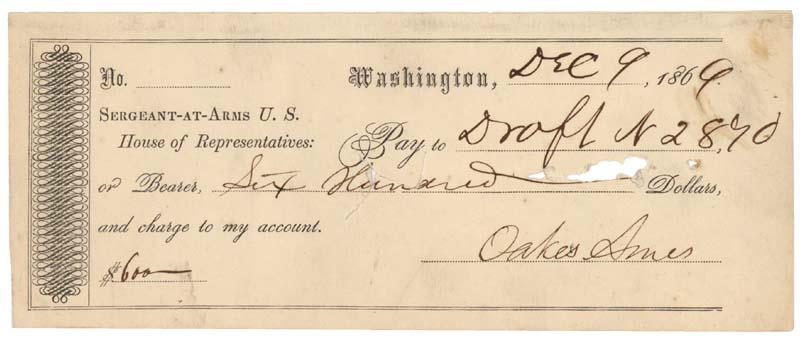 No. Washington, Dec 9, 1869.
SERGEANT-AT-ARMS U. S.
House of Representatives: Pay to Draft N 2870
or Bearer, Six Hundred Dollars,
and charge to my account.
Oakes Ames
$600